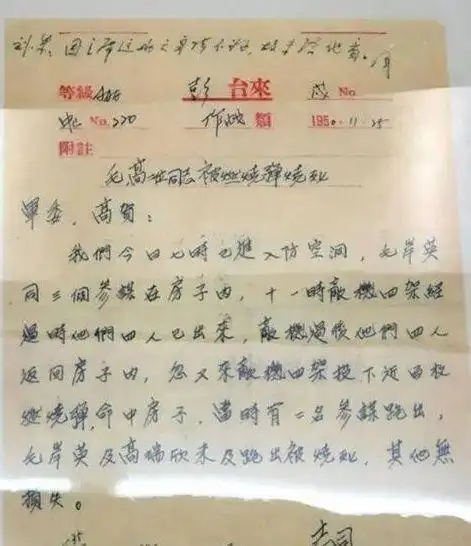 等級 彭 台來 No.
No. 220 作战 類 1950.11.25
附註
毛高 同志被燃燒彈燒死
軍委,高賀:
我們今日七時已進入防空洞,毛岸英
同三個參謀在房子内,十一時敵機四架經
過時他們四人已出來,敵機過後他們四人
返回房子内,忽又來敵機四架投下近百枚
燃燒彈,命中房子,當時有二名參謀跑出,
毛岸英及高瑞欣未及跑出被燒死,其他無
損失。
志司